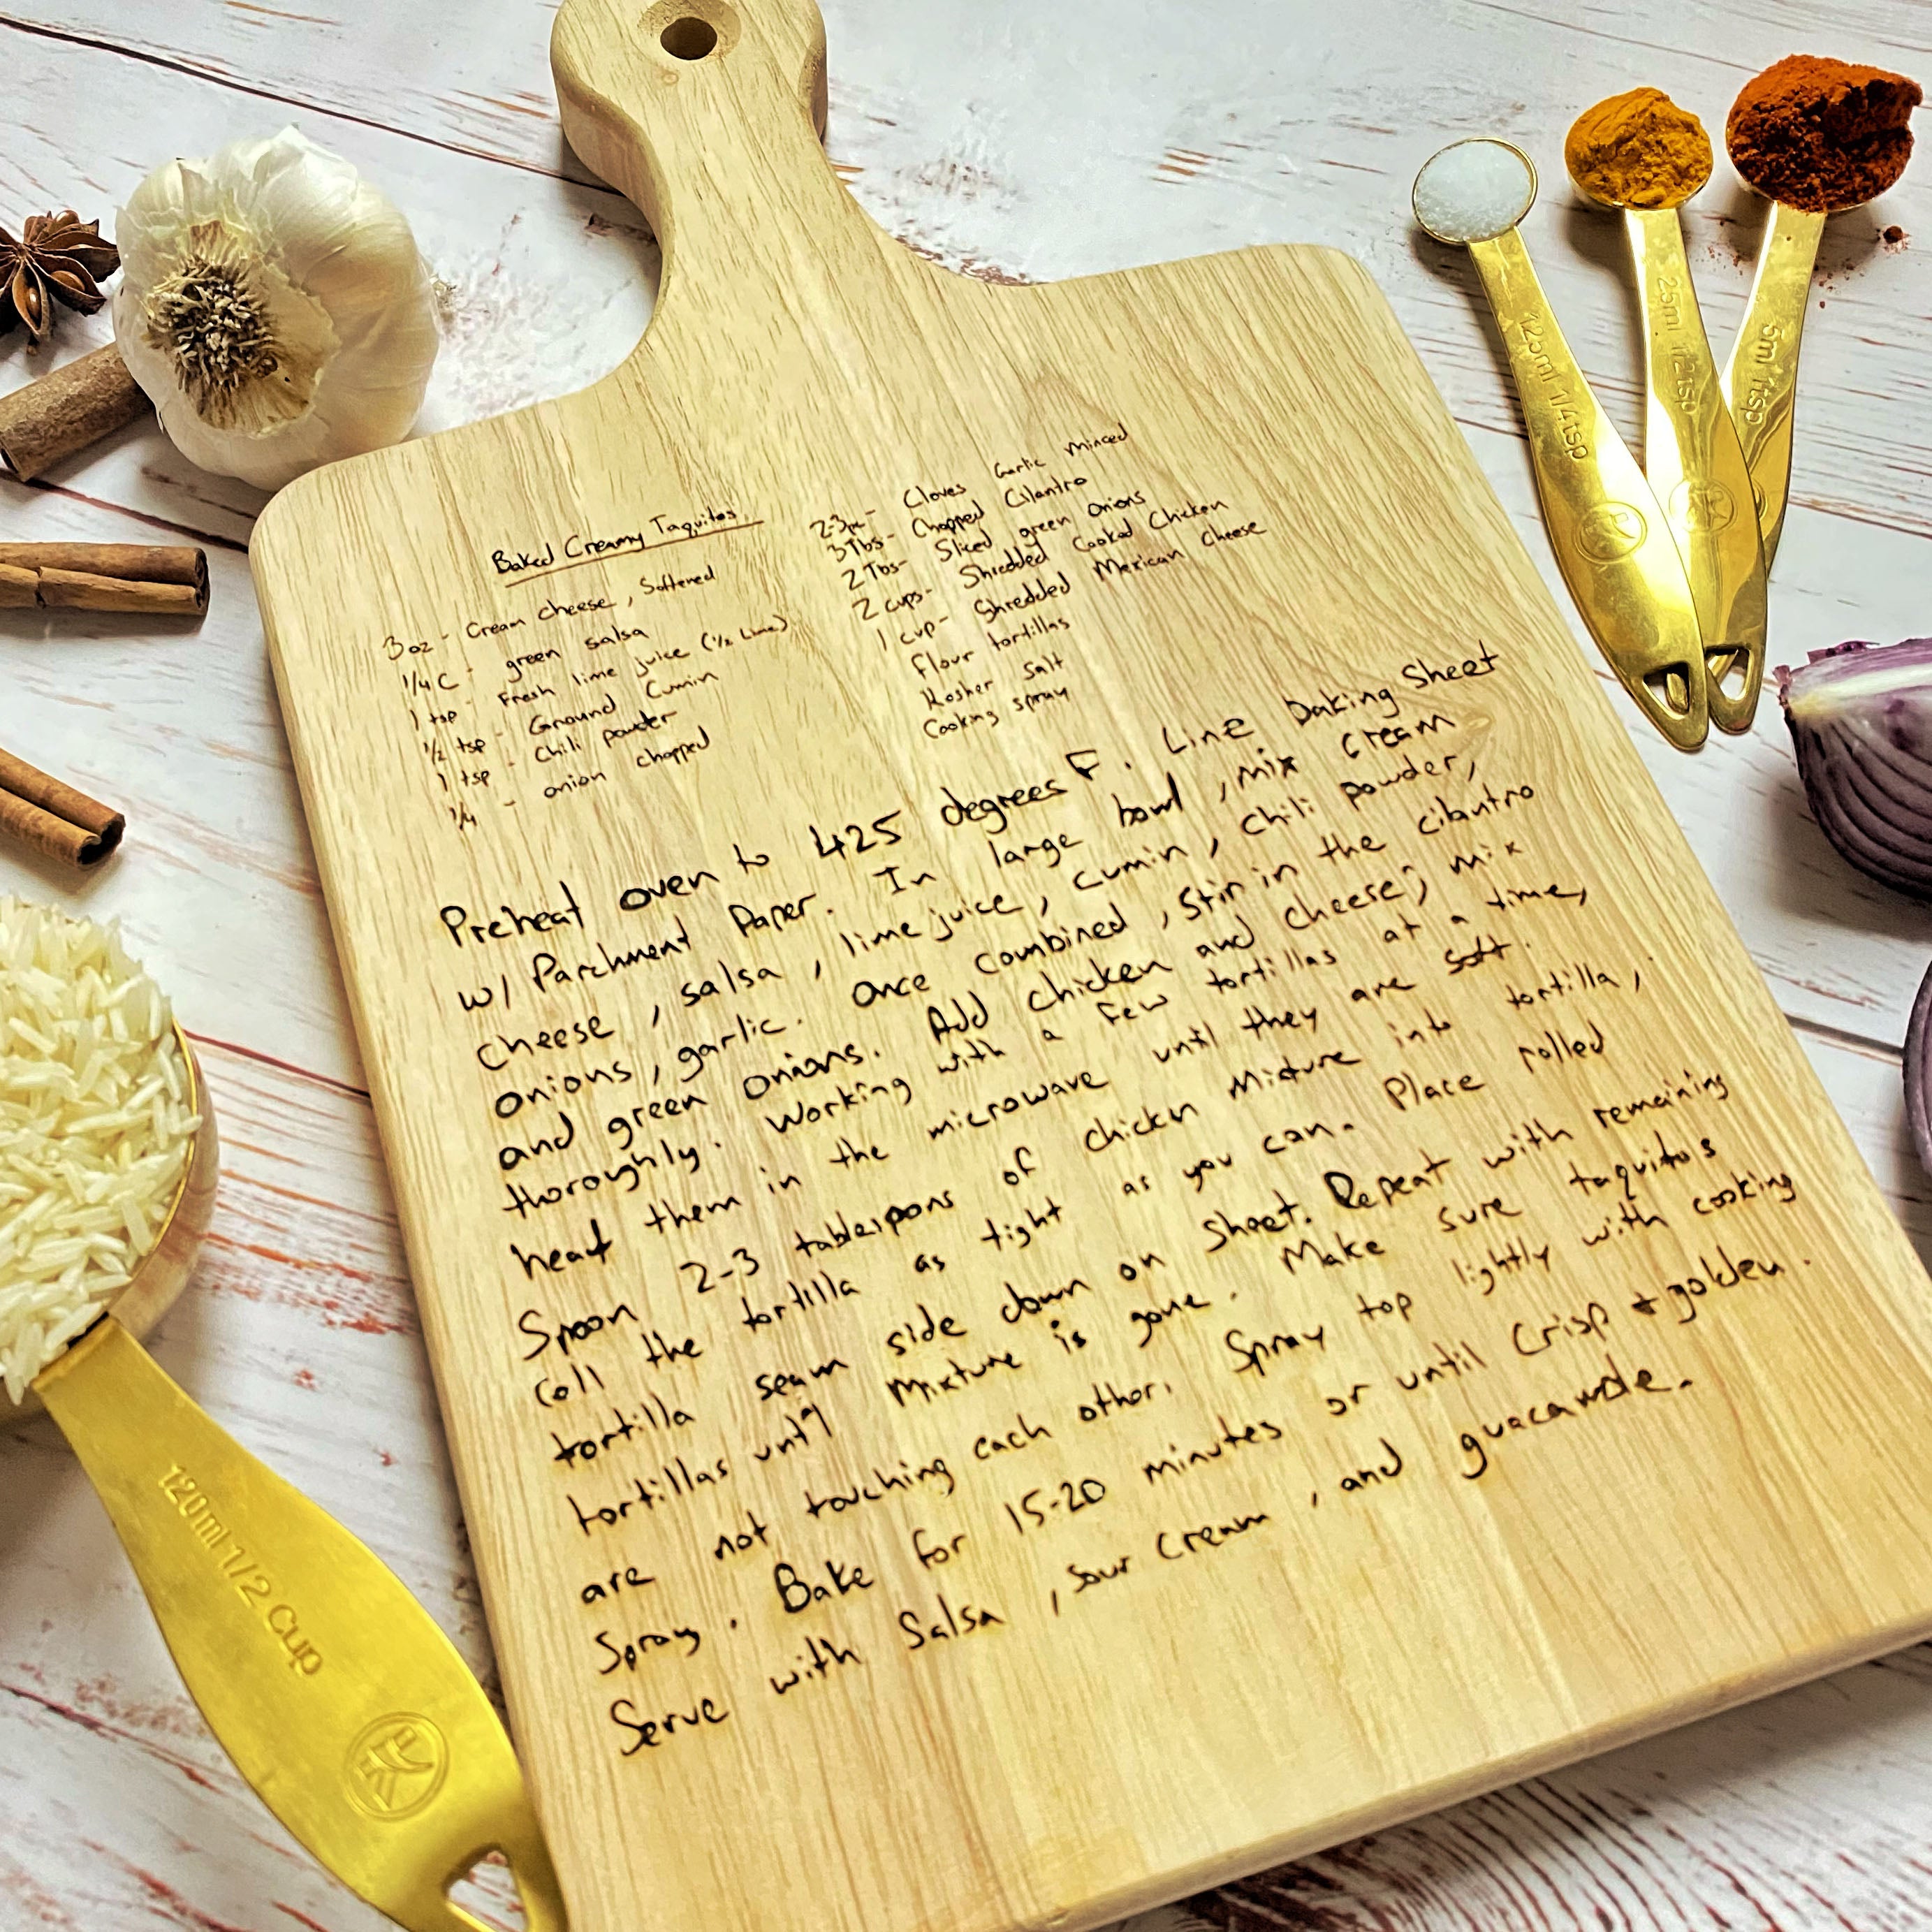 Baked Creamy Taquitos
3 oz - Cream cheese, Softened
1/4 C - green salsa
1 tsp - Fresh lime juice (1/2 Lime)
1/2 tsp - Ground Cumin
1 tsp - Chili powder
1/4 - onion chopped
2-3pc - Cloves Garlic Minced
3 Tbs - Chopped Cilantro
2 Tbs - Sliced green onions
2 cups - Shredded Cooked Chicken
1 cup - Shredded Mexican Cheese
Flour tortillas
Kosher Salt
Cooking spray
Preheat oven to 425 degrees F. Line baking Sheet
w/ Parchment Paper. In large bowl, mix cream
cheese, salsa, lime juice, cumin, chili powder,
onions, garlic. Once combined, stir in the cilantro
and green onions. Add chicken and cheese; mix
thoroughly. Working with a few tortillas at a time,
heat them in the microwave until they are soft.
Spoon 2-3 tablespoons of chicken Mixture into tortilla;
roll the tortilla as tight as you can. Place rolled
tortilla seam side down on sheet. Repeat with remaining
tortillas until Mixture is gone. Make sure taquitos
are not touching each other. Spray top lightly with cooking
Spray. Bake for 15-20 minutes or until Crisp + golden.
Serve with Salsa, sour cream, and guacamole.
125ml 1/4tsp
25ml 1/2tsp
5ml 1tsp
120ml 1/2 Cup